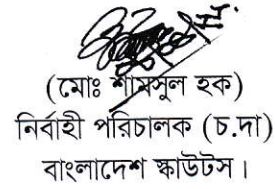 (মোঃ শামসুল হক)
নির্বাহী পরিচালক (চ.দা)
বাংলাদেশ স্কাউটস।